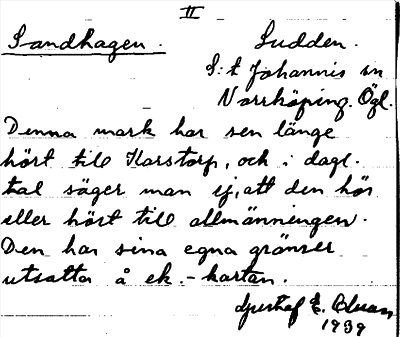 II
Sandhagen. Sudden.
S:t Johannis sn
Norrköping. Ögl.
Denna mark har sen länge
hört till Karstorp, och i dagl.
tal säger man ej, att den hör
eller hört till allmänningen.
Den har sina egna gränser
utsatta å ek.-kartan.
Gustaf E.
1939